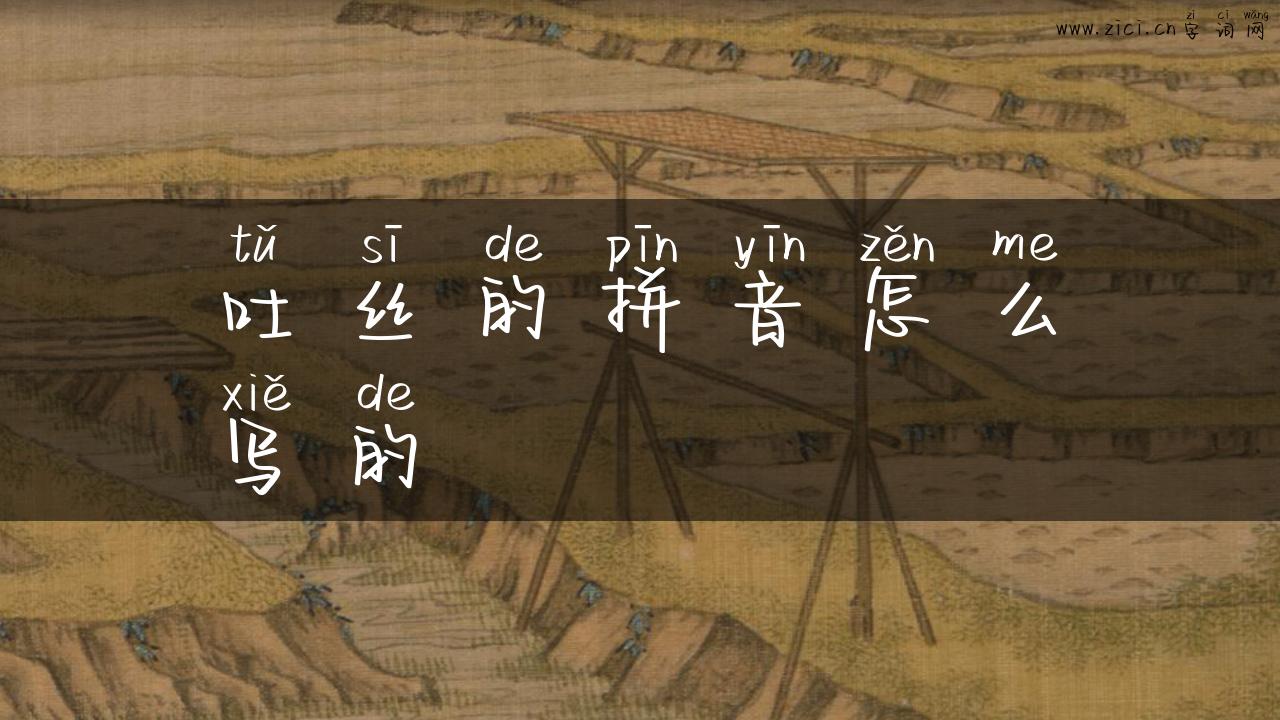 zì cí wǎng
www.zici.cn 字 词 网
tǔ sī de pīn yīn zěn me
吐 丝 的 拼 音 怎 么
xiě de
写 的